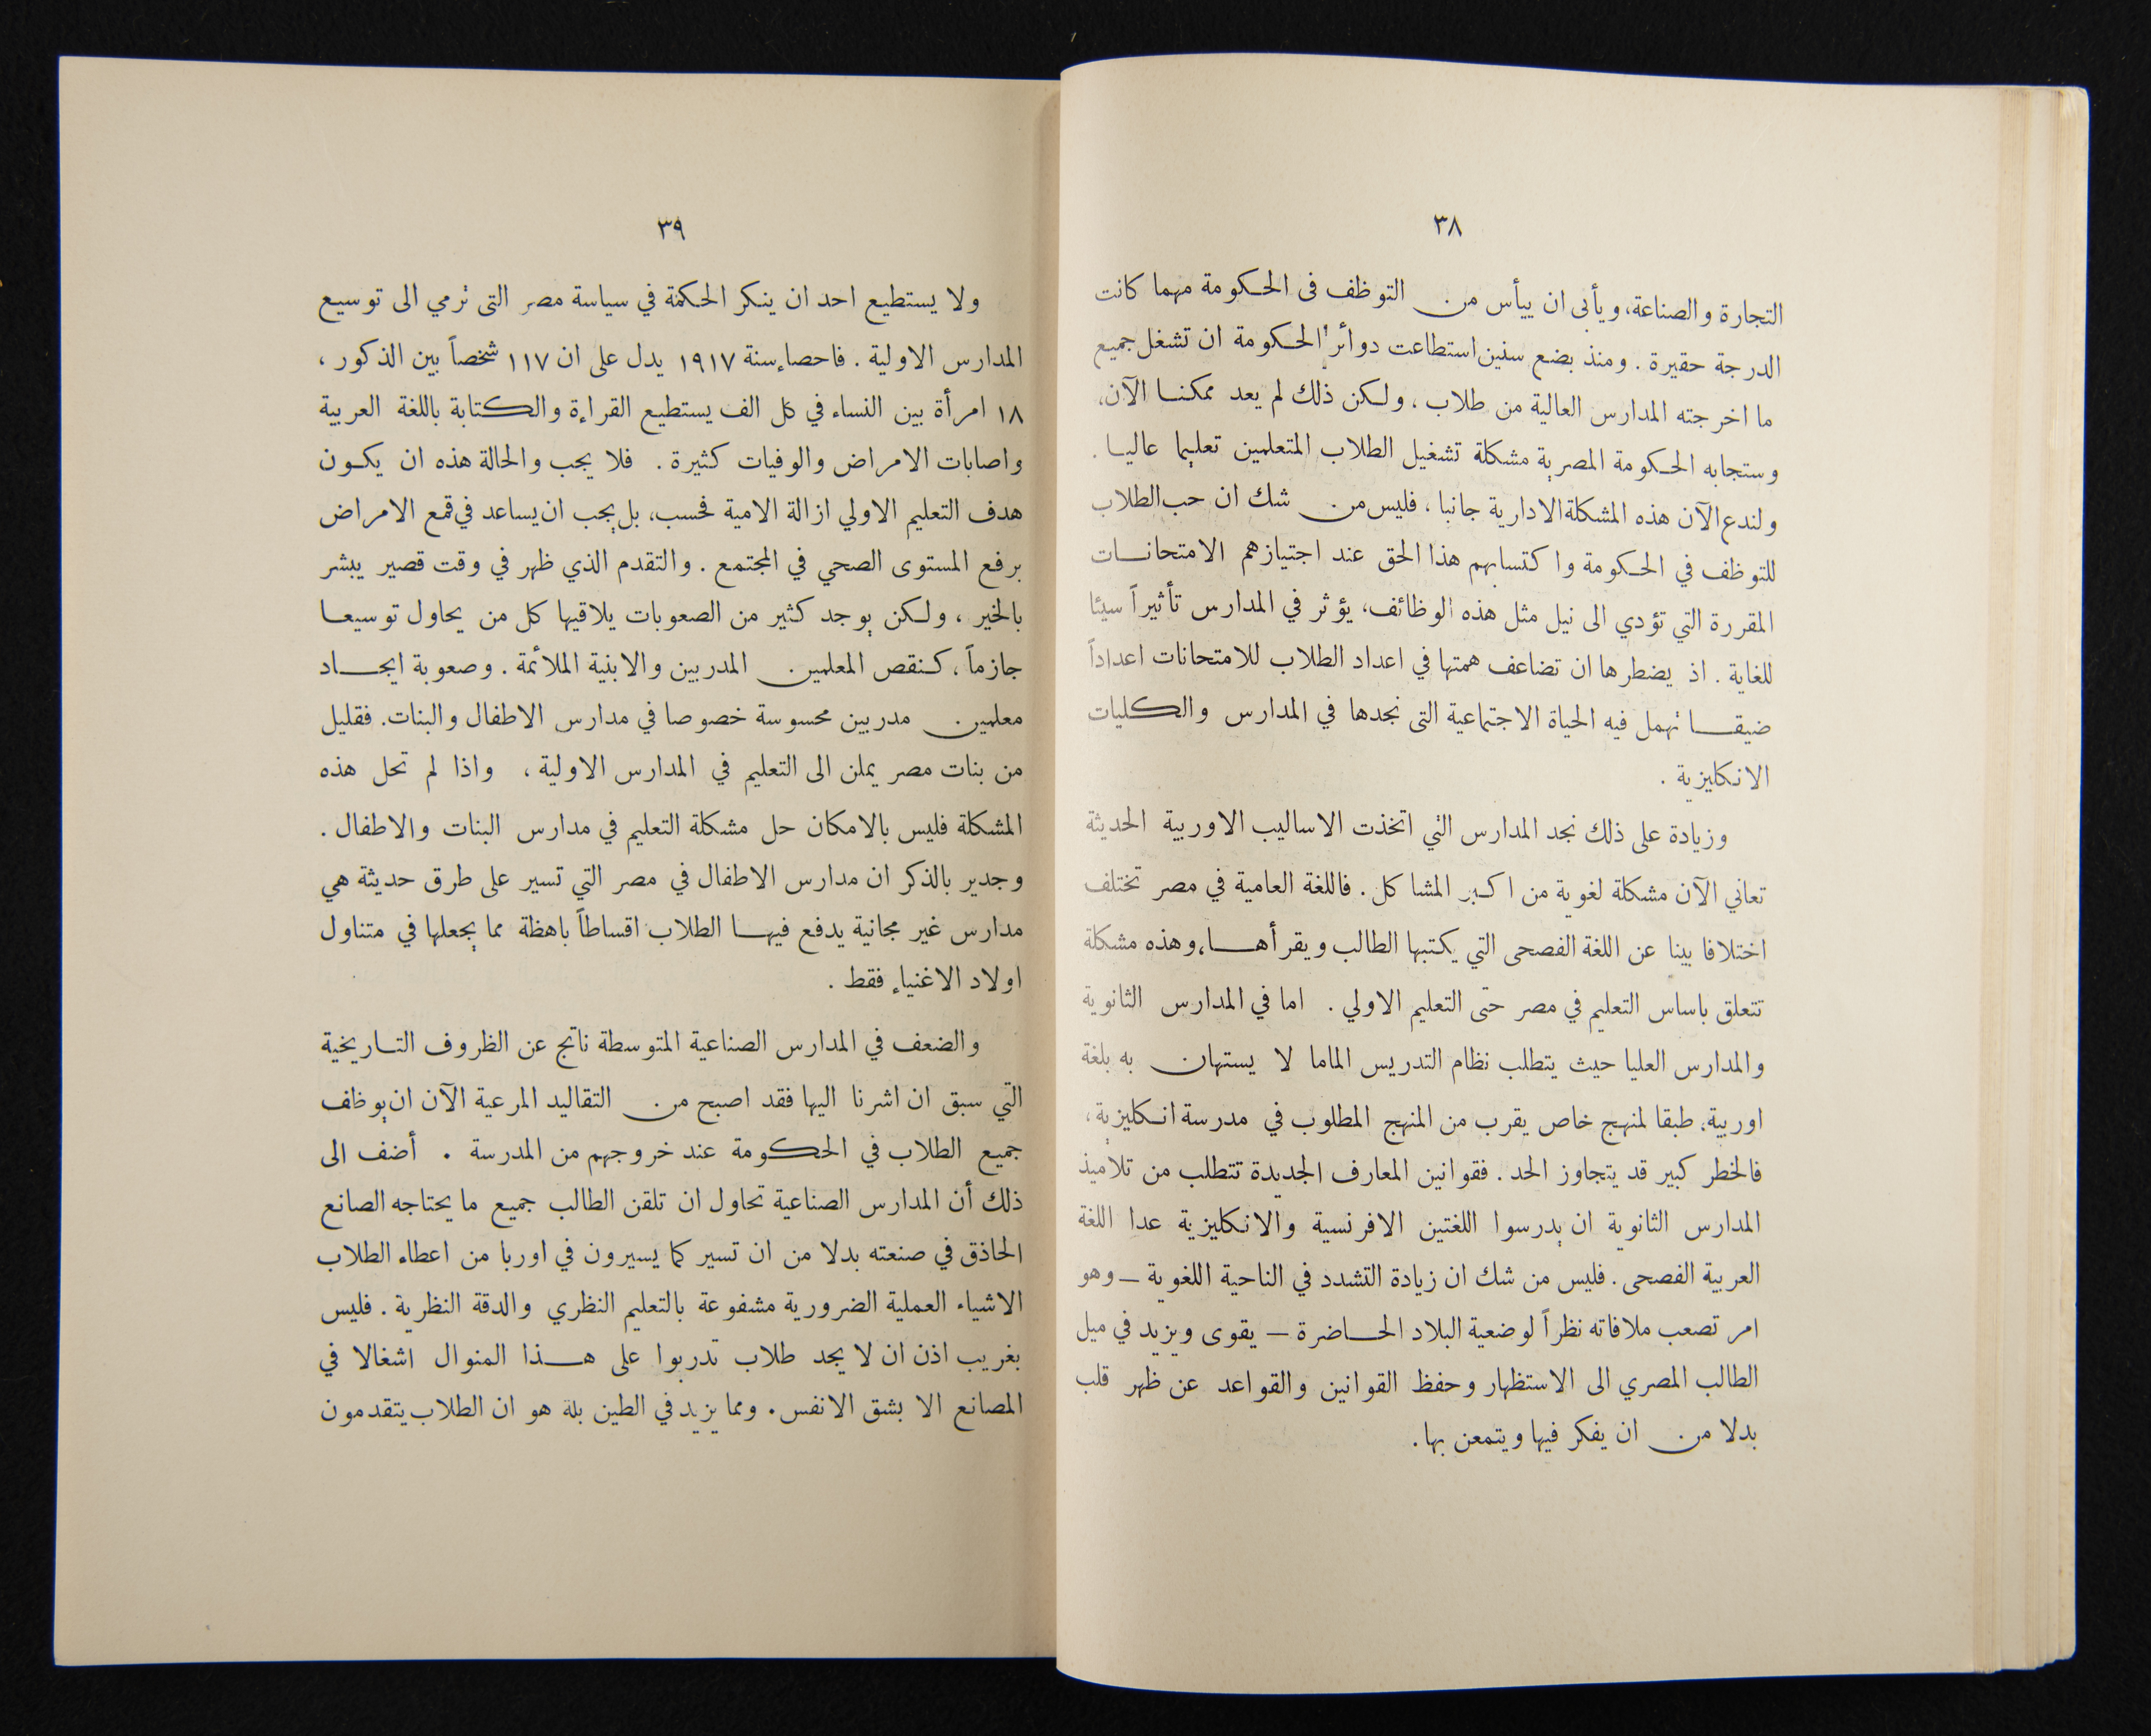 ٣٨
التجارة والصناعة، ويأبى ان ييأس من التوظف فى الحكومة مهما كانت
الدرجة حقيرة . ومنذ بضع سنين استطاعت دوائر الحكومة ان تشغل جميع
ما اخرجته المدارس العالية من طلاب ، ولكن ذلك لم يعد ممكنا الآن،
وستجابه الحكومة المصرية مشكلة تشغيل الطلاب المتعلمين تعليما عاليا .
ولندع الآن هذه المشكلة الادارية جانبا ، فليس من شك ان حب الطلاب
للتوظف في الحكومة واكتسابهم هذا الحق عند اجتيازهم الامتحانات
المقررة التي تؤدي الى نيل مثل هذه الوظائف، يؤثر في المدارس تأثيراً سيئا
للغاية . اذ يضطرها ان تضاعف همتها في اعداد الطلاب للامتحانات اعداداً
ضيقا تهمل فيه الحياة الاجتماعية التى نجدها في المدارس والكليات
الانكليزية .
وزيادة على ذلك نجد المدارس التي اتخذت الاساليب الاوربية الحديثة
تعاني الآن مشكلة لغوية من اكبر المشاكل . فاللغة العامية في مصر تختلف
اختلافا بينا عن اللغة الفصحى التي يكتبها الطالب ويقرأها، وهذه مشكلة
تتعلق باساس التعليم في مصر حتى التعليم الاولي . اما في المدارس الثانوية
والمدارس العليا حيث يتطلب نظام التدريس الماما لا يستهان به بلغة
اوربية، طبقا لمنهج خاص يقرب من المنهج المطلوب في مدرسة انكليزية،
فالخطر كبير قد يتجاوز الحد . فقوانين المعارف الجديدة تتطلب من تلاميذ
المدارس الثانوية ان يدرسوا اللغتين الافرنسية والانكليزية عدا اللغة
العربية الفصحى . فليس من شك ان زيادة التشدد في الناحية اللغوية – وهو
امر تصعب ملافاته نظراً لوضعية البلاد الحاضرة – يقوى ويزيد في ميل
الطالب المصري الى الاستظهار وحفظ القوانين والقواعد عن ظهر قلب
بدلا من ان يفكر فيها ويتمعن بها .
٣٩
ولا يستطيع احد ان ينكر الحكمة في سياسة مصر التى ترمي الى توسيع
المدارس الاولية . فاحصاء سنة ١٩١٧ يدل على ان ١١٧ شخصاً بين الذكور ،
١٨ امرأة بين النساء في كل الف يستطيع القراءة والكتابة باللغة العربية
واصابات الامراض والوفيات كثيرة . فلا يجب والحالة هذه ان يكون
هدف التعليم الاولي ازالة الامية فحسب، بل يجب ان يساعد في قمع الامراض
برفع المستوى الصحي في المجتمع . والتقدم الذي ظهر في وقت قصير يبشر
بالخير ، ولكن يوجد كثير من الصعوبات يلاقيها كل من يحاول توسيعا
جازماً ، كنقص المعلمين المدربين والابنية الملائمة . وصعوبة ايجاد
معلمين مدربين محسوسة خصوصا في مدارس الاطفال والبنات. فقليل
من بنات مصر يملن الى التعليم في المدارس الاولية ، واذا لم تحل هذه
المشكلة فليس بالامكان حل مشكلة التعليم في مدارس البنات والاطفال .
وجدير بالذكر ان مدارس الاطفال في مصر التي تسير على طرق حديثة هي
مدارس غير مجانية يدفع فيها الطلاب اقساطاً باهظة مما يجعلها في متناول
اولاد الاغنياء فقط .
والضعف في المدارس الصناعية المتوسطة ناتج عن الظروف التاريخية
التي سبق ان اشرنا اليها فقد اصبح من التقاليد المرعية الآن ان يوظف
جميع الطلاب في الحكومة عند خروجهم من المدرسة . أضف الى
ذلك أن المدارس الصناعية تحاول ان تلقن الطالب جميع ما يحتاجه الصانع
الحاذق في صنعته بدلا من ان تسير كما يسيرون في اوربا من اعطاء الطلاب
الاشياء العملية الضرورية مشفوعة بالتعليم النظري والدقة النظرية . فليس
بغريب اذن ان لا يجد طلاب تدربوا على هذا المنوال اشغالا في
المصانع الا بشق الانفس . ومما يزيد في الطين بلة هو ان الطلاب يتقدمون